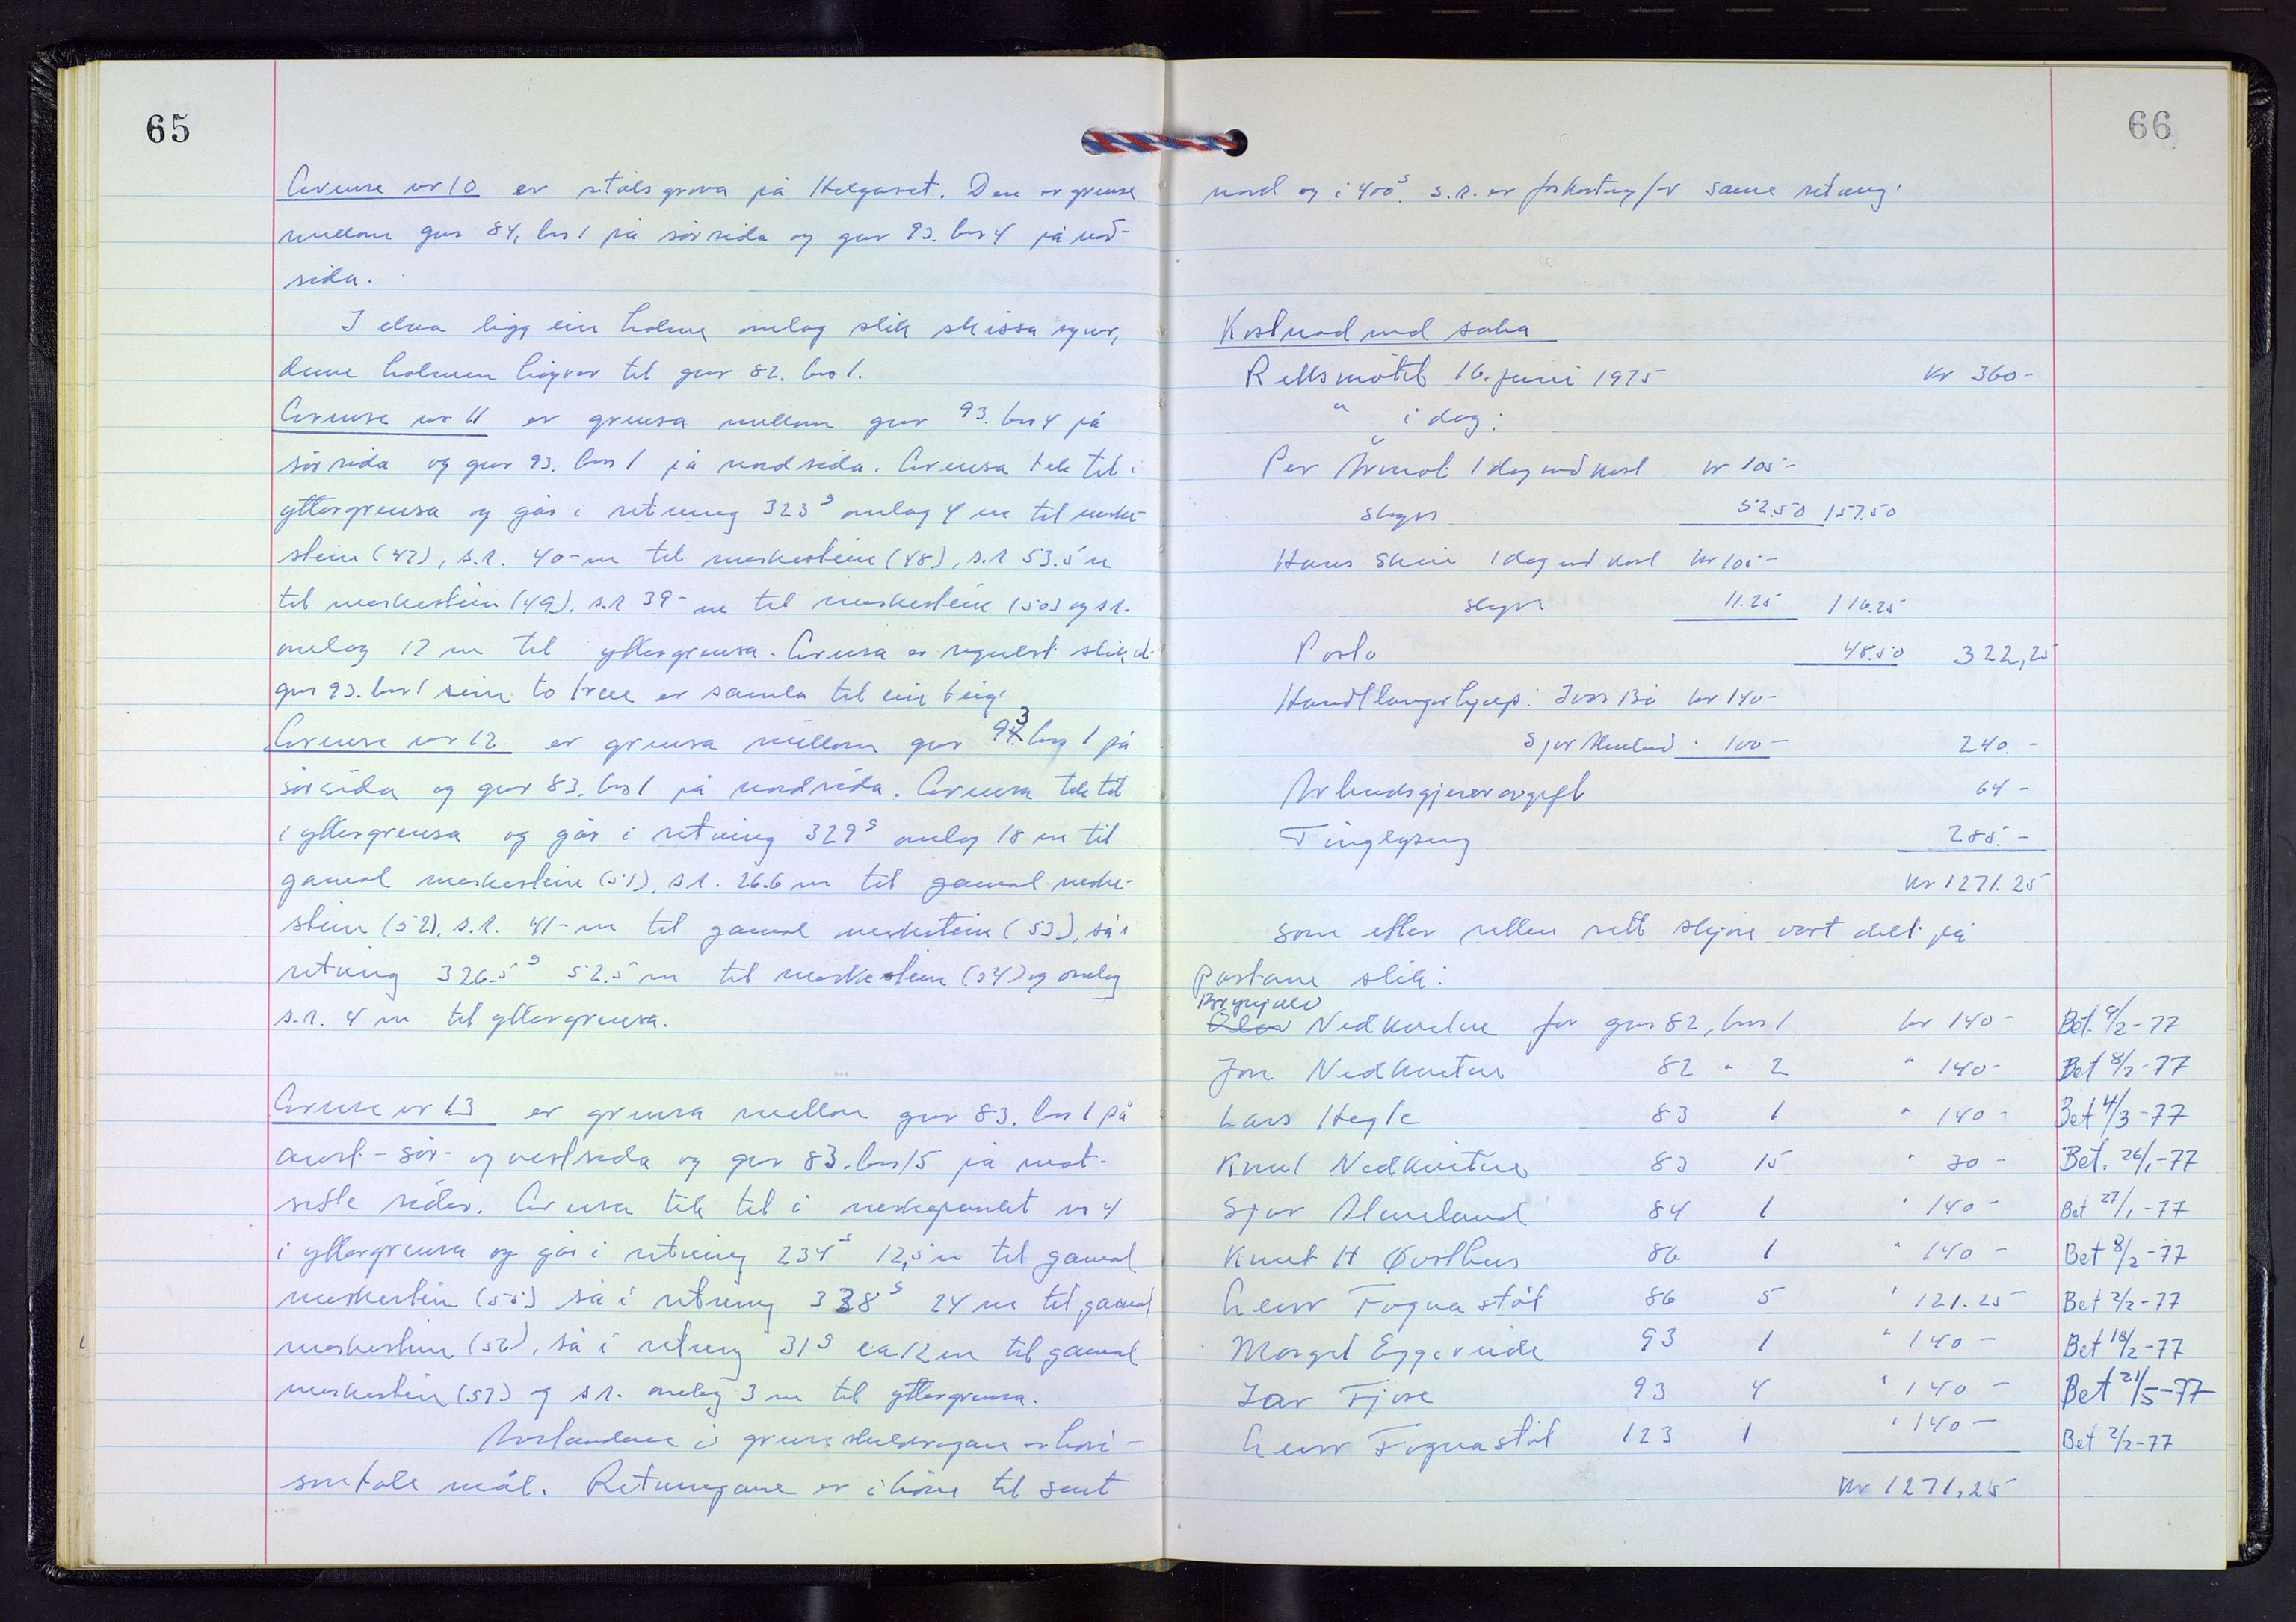 65
Grense nr 10 er stålsgrova på Helgaset. Den er grense
mellom gnr 84, bnr 1 på sørsida og gnr 93. bnr 4 på nord-
sida.
I elva ligg ein holme omlag slik skissa syner,
denne holmen høyrer til gnr 82. bnr 1.
Grense nr 11 er grensa mellom gnr 93. bnr 4 på
sørsida og gnr 93. bnr 1 på nordsida. Grensa tek til i
yttergrensa og går i retning 323ᵍ omlag 4 m til merke-
stein (47), s.r. 40- m til merkestein (48), s.r 53.5 m
til merkestein (49). s.r 39- m til merkestein (50) og s.r.
omlag 12 m til yttergrensa. Grensa er regulert slik at
gnr 93. bnr 1 sine to tene er samla til ein teig.
Grense nr 12 er grensa mellom gnr 93. bnr 1 på
sørsida og gnr 83. bnr 1 på nordsida. Grensa tek til
i yttergrensa og går i retning 329ᵍ omlag 18 m til
gamal merkestein (51), s.r. 26.6 m til gamal merke-
stein (52), s.r. 41- m til gamal merkestein (53), så i
retning 326.5ᵍ 52.5 m til merkestein (54) og omlag
s.r. 4 m til yttergrensa.
Grense nr 13 er grensa mellom gnr 83. bnr 1 på
aust- sør- og vestsida og gnr 83. bnr 15 på mot-
sette sider. Grensa tek til i merkepunkt nr 4
i yttergrensa og går i retning 234ᵍ 12,5 m til gamal
merkestein (55) så i retning 338ᵍ 24 m til gamal
merkestein (56), så i retning 31ᵍ ca 12 m til gamal
merkestein (57) og s.r. omlag 3 m til yttergrensa.
Avstandane i grenseutdragane er hori-
sontale mål. Retningane er i høve til sant
66
nord og i 400ᵍ. s.r. er forkorting for same retning.
Kostnad med saka
Rettsmøtet 16. juni 1975 kr 360-
" i dag:
Per Århol 1 dag med kost kr 105-
skyss 52.50 157.50
Hans Skeie 1 dag med kost kr 105-
skyss 11.25 116.25
Porto 48.50 322,25
Handtlangarhjelp: Ivar Bø kr 140-
Sjur Almeland " 100- 240.-
Arbeidsgjevaravgift 64-
Tinglysing 285.-
kr 1271.25
som etter retten sitt skjøn vart delt på
partane slik:
Brynjulv
Olav Nedkvitne for gnr 82, bnr 1 kr 140- Bet. 9/2-77
Jon Nedkvitne 82 " 2 " 140- Bet 8/2-77
Lars Hegle 83 1 " 140- Bet 4/3-77
Knut Nedkvitne 83 15 " 30- Bet. 26/1-77
Sjur Almeland 84 1 " 140- Bet 27/1-77
Knut H Østhus 86 1 " 140- Bet 8/2-77
Geirr Fognastøl 86 5 " 121.25 Bet 2/2-77
Margit Eggereide 93 1 " 140- Bet 18/2-77
Ivar Fjose 93 4 " 140- Bet 21/5-77
Geirr Fognastøl 123 1 " 140- Bet 2/2-77
kr 1271,25